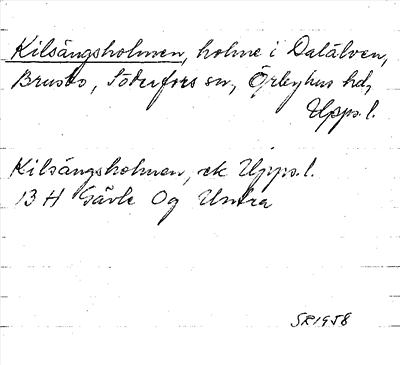 Kilsängsholmen, holme i Dalälven,
Brusbo, Söderfors sn, Örbyhus hd,
Upps. l.
Kilsängsholmen, ek Upps. l.
13 H Gävle Og Untra
SR1958